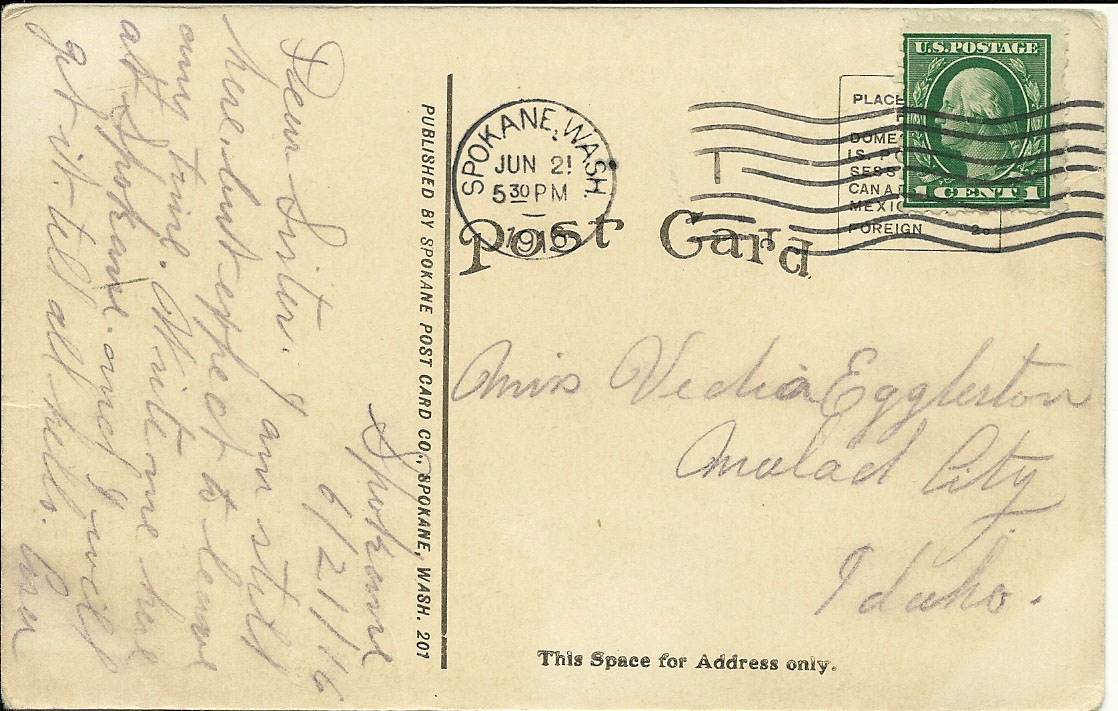 Spokane
6/21/16
Dear Sister. I am still
here, but expect to leave
any time. Write me here
at Spokane. and I will
get it. tell all hello.
PUBLISHED BY SPOKANE POST CARD CO., SPOKANE, WASH. 201
SPOKANE, WASH.
JUN 21
5 30 PM
Post Card
U.S. POSTAGE
1 CENT 1
PLACE
DOME
IS. PO
SESS
CANA
MEXIC
FOREIGN 2c
Miss Vedia Eggleston
Malad City
Idaho.
This Space for Address only.